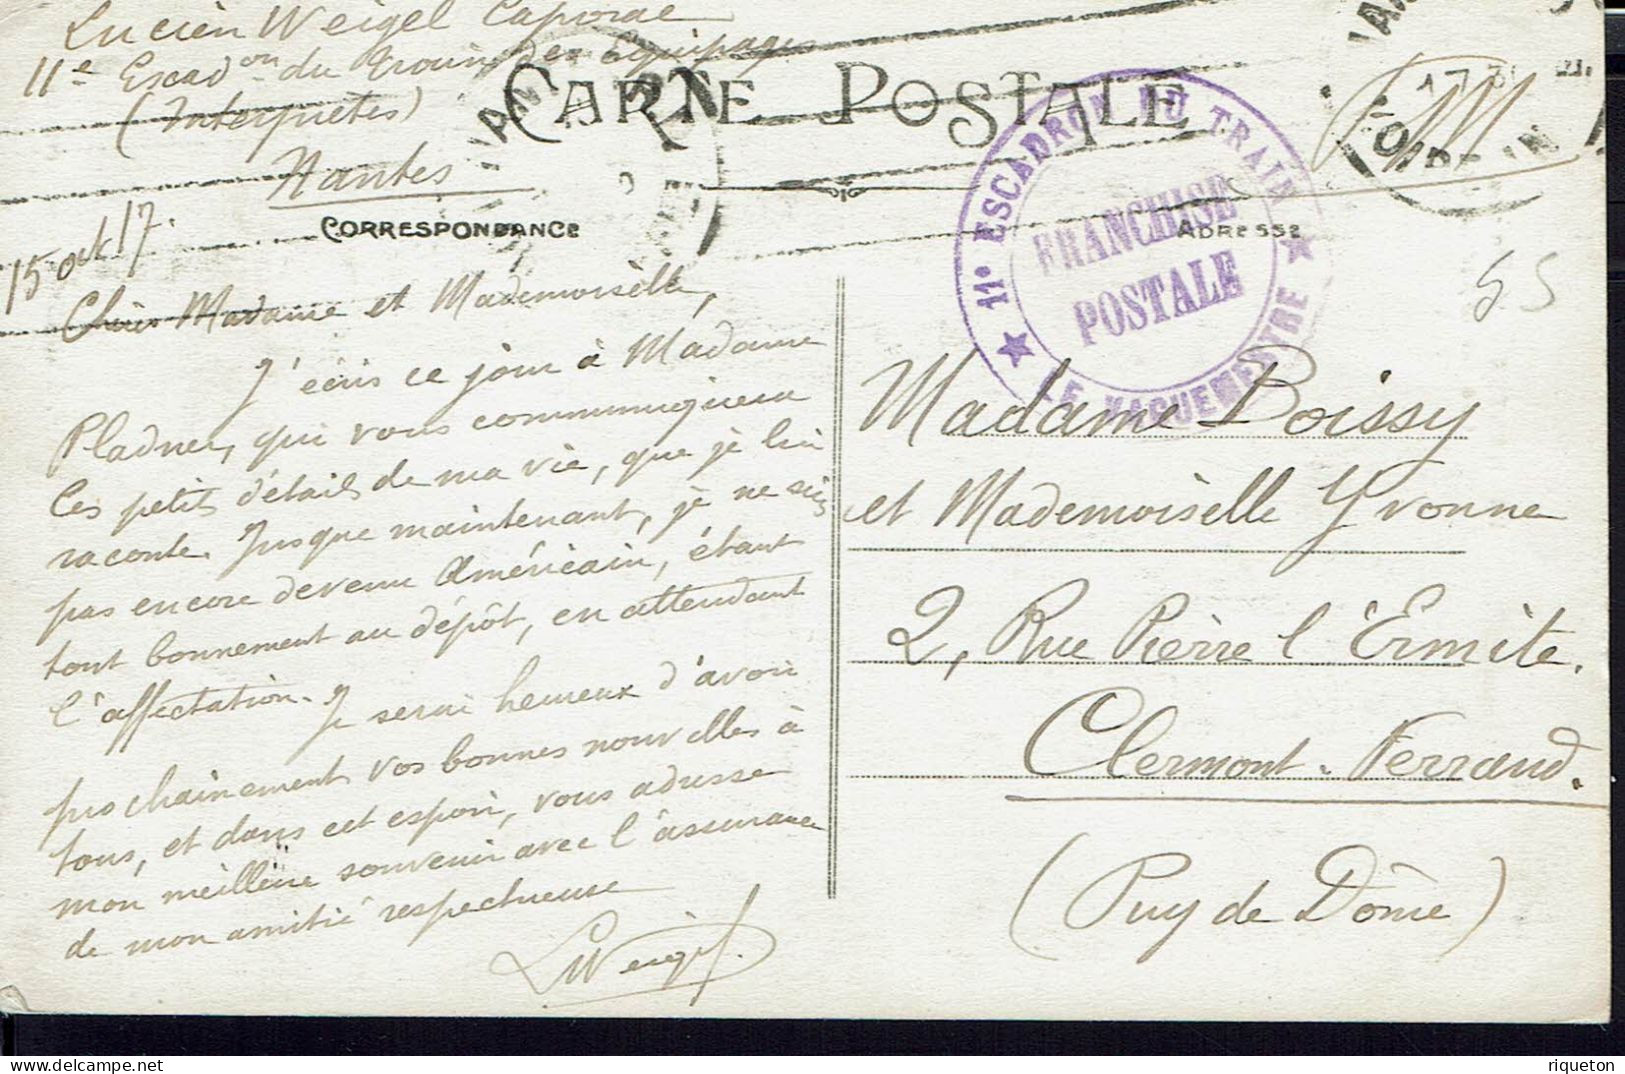 Lucien Weigel Caporal
11e Escadon du Train des Equipages
(Interprètes)
Nantes
CARTE POSTALE
FM
CORRESPONDANCE
ADRESSE
11e ESCADRON DU TRAIN
FRANCHISE
POSTALE
LE VAGUEMESTRE
15 oct. 17.
55
Chères Madame et Mademoiselle,
J'écris ce jour à Madame
Pladner, qui vous communiquera
les petits détails de ma vie, que je lui
raconte. Jusque maintenant, je ne suis
pas encore devenu Américain, étant
tout bonnement au dépôt, en attendant
l'affectation. Je serai heureux d'avoir
prochainement vos bonnes nouvelles à
tous, et dans cet espoir, vous adresse
mon meilleur souvenir avec l'assurance
de mon amitié respectueuse
LWeigel.
Madame Boissy
et Mademoiselle Yvonne
2, Rue Pierre l'Ermite.
Clermont-Ferrand.
(Puy de Dôme)
delcampe.net
riqueton